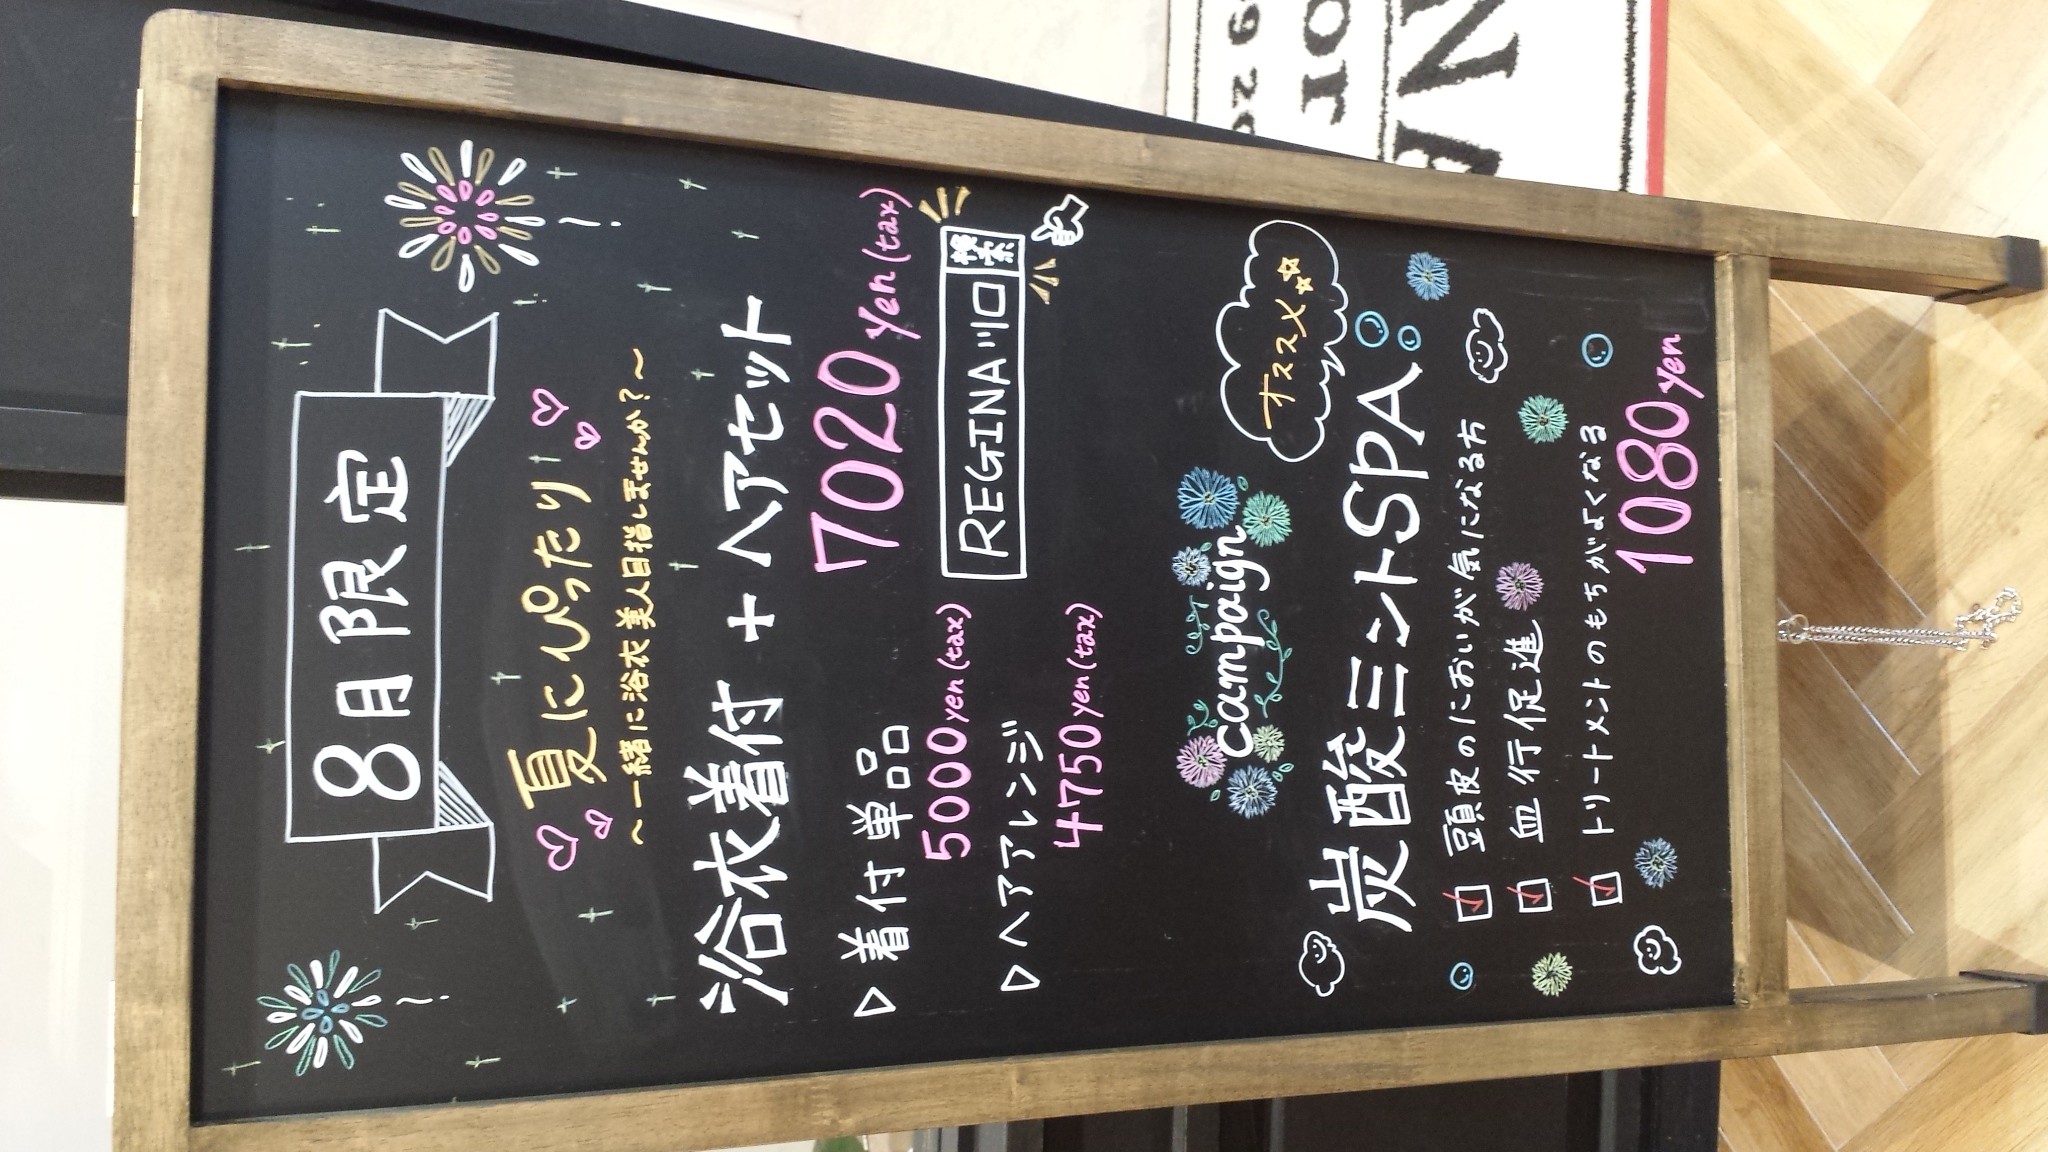 8月限定
夏にぴったり!
～一緒に浴衣美人目指しませんか?～
浴衣着付 + ヘアセット
7020yen(tax)
▷着付単品
5000yen(tax)
REGINA川口 検索
▷ヘアアレンジ
4750yen(tax)
campaign
オススメ
炭酸ミントSPA
頭皮のにおいが気になる方
血行促進
トリートメントのもちがよくなる
1080yen
NA
or
9 20